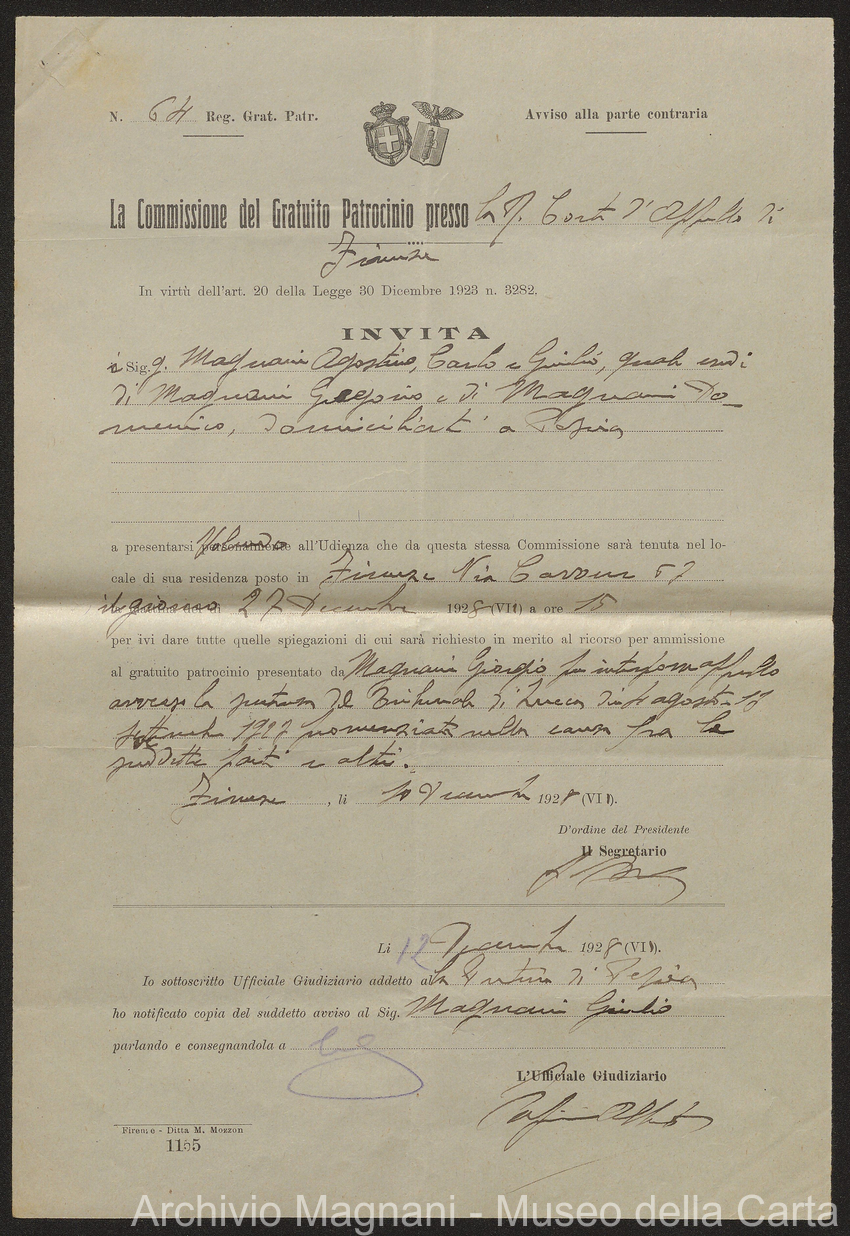 N. 64 Reg. Grat. Patr.
Avviso alla parte contraria
La Commissione del Gratuito Patrocinio presso la R. Corte d'Appello di
Firenze
In virtù dell'art. 20 della Legge 30 Dicembre 1923 n. 3282.
INVITA
i Sig.g. Magnani Agostino, Carlo e Giulio, quali eredi
di Magnani Gregorio e di Magnani Do-
menico, domiciliati a Pescia
a presentarsi personalmente all'Udienza che da questa stessa Commissione sarà tenuta nel lo-
cale di sua residenza posto in Firenze Via Cavour 57
il giorno 27 Decembre 1928 (VII) a ore 15
per ivi dare tutte quelle spiegazioni di cui sarà richiesto in merito al ricorso per ammissione
al gratuito patrocinio presentato da Magnani Giorgio per interporre appello
avverso la sentenza del Tribunale di Lucca di 4 agosto - 18
settembre 1927 pronunziata nella causa fra le
suddette parti e altri.
Firenze, li 10 Decembre 1928 (VII).
D'ordine del Presidente
Il Segretario
Li 12 Decembre 1928 (VII).
Io sottoscritto Ufficiale Giudiziario addetto alla Pretura di Pescia
ho notificato copia del suddetto avviso al Sig. Magnani Giulio
parlando e consegnandola a
L'Ufficiale Giudiziario
Firenze - Ditta M. Mozzon
1155
Archivio Magnani - Museo della Carta